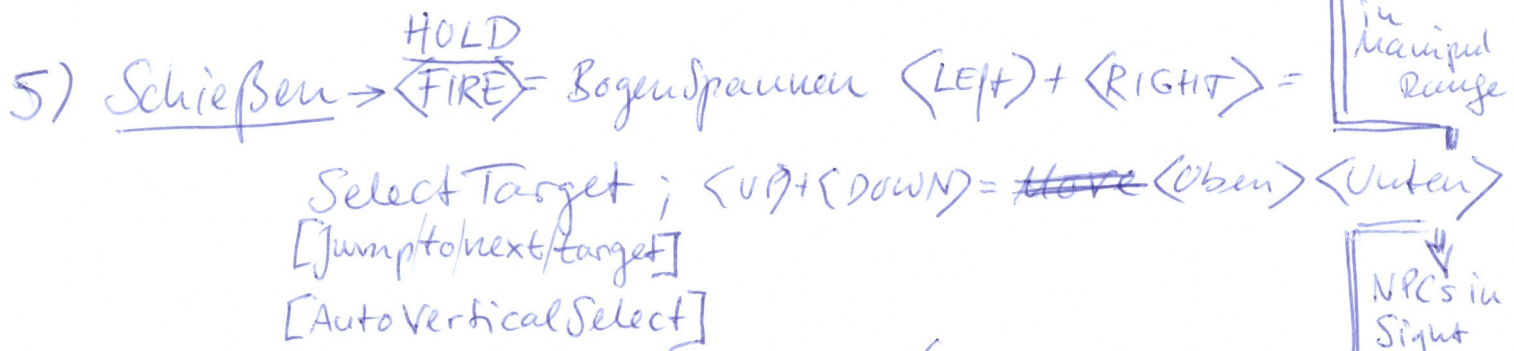 HOLD
5) Schießen → <FIRE> = Bogen Spannen <LEft> + <RIGHT> =
in
Manipul
Range
Select Target ; <UP>+<DOWN> = Move <Oben> <Unten>
[Jump/to/next/target]
[Auto Vertical Select]
NPCs in
Sight